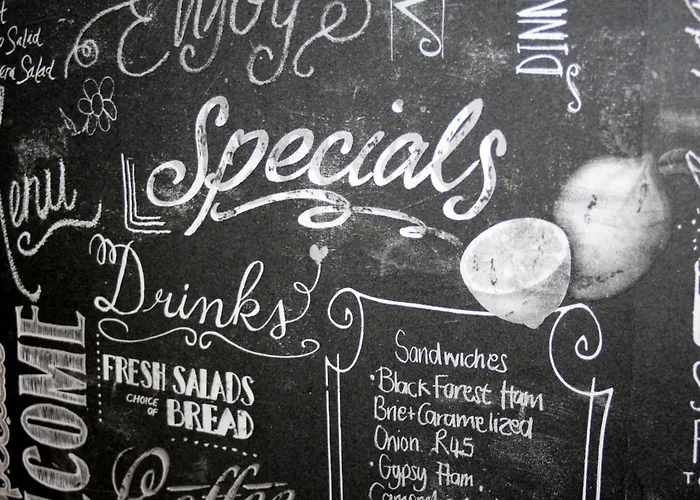 Enjoy
Salad
Salad
DINN
Specials
enu
Drinks
COME
FRESH SALADS
CHOICE
OF
BREAD
Coffee
Sandwiches
• Black Forest Ham
Brie + Caramelized
Onion R45
• Gypsy Ham